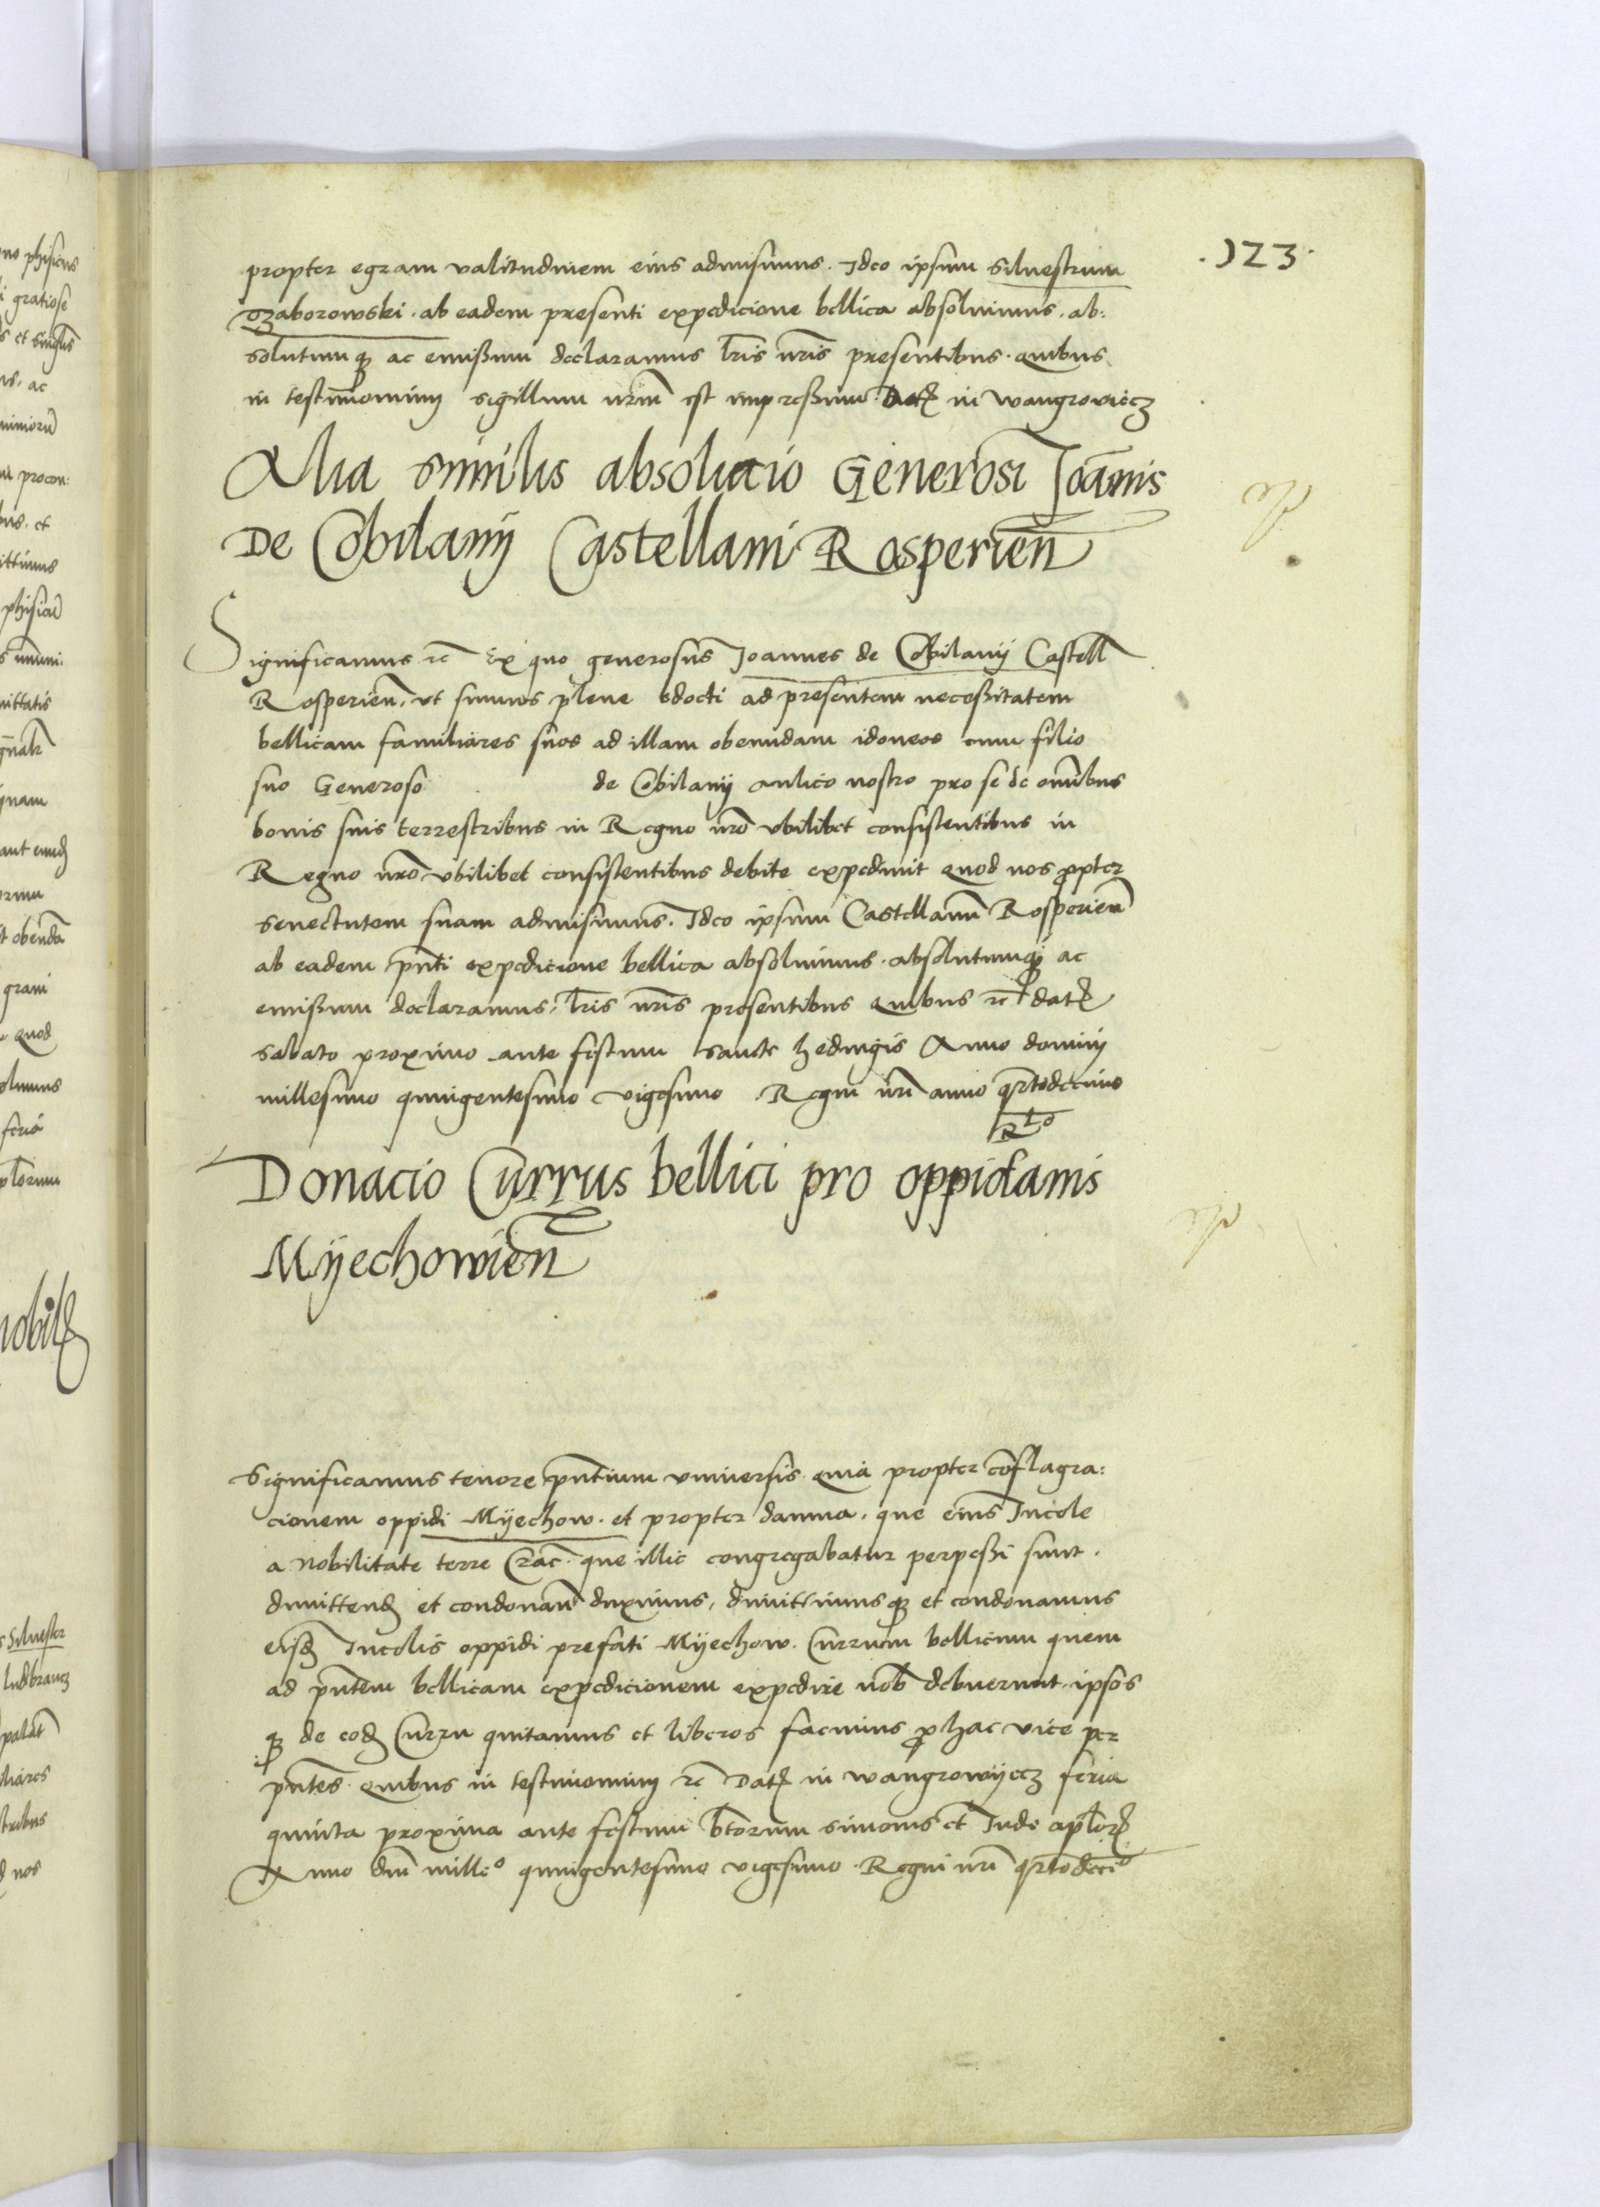 .123.
propter egram valitudinem eius admisimus. Ideo ipsum Siluestrum
Ozaborowski. ab eadem presenti expedicione bellica absoluimus. ab:
solutumq3 ac emissum declaramus lr̄is nr̄is presentibus. quibus
in testimonium sigillum nr̄m est impressum Dat in wangrowiecz
Alia similis absolucio Generosi Joānnis
De Cobilany Castellani Rosperien̄
Significamus &c̄ Ex quo generosus Joannes de Cobilany Castell
Rosperien̄. vt sumus plene edocti ad presentem necessitatem
bellicam familiares suos ad illam obeundam idoneos cum filio
suo Generoso de Cobilany aulico nostro pro se de omībus
bonis suis terrestribus in Regno nr̄o vbilibet consistentibus in
Regno nr̄o vbilibet consistentibus debite expediuit quod nos propter
senectutem suam admisimus. Ideo ipsum Castellanū Rosperien̄
ab eadem pn̄ti expedicione bellica absoluimus. absolutumq3 ac
emissum declaramus, lr̄is nr̄is presentibus quibus &c̄ dat
sabato proximo ante festum sancte hedwigis Anno dominy
millesimo quingentesimo vigesimo Regni nr̄i anno qr̄todecimo
Rto
Donacio Currus bellici pro oppidanis
Myechowien̄
Significamus tenore pn̄tium vniuersis quia propter cōflagra:
cionem oppidi Myechow. et propter damna. que eius Incole
a Nobilitate terre Crac̄. que illic congregabatur perpessi sunt.
dimittend et condonan̄ duximus, dimittimusq3 et condonamus
eisd Incolis oppidi prefati Myechow. Currum bellicum quem
ad pn̄tem bellicam expedicionem expedire nob̄ debuerunt. ipsos
q3 de eod Curru quitamus et liberos facimus pro hac vice per
pn̄tes. quibus in testimonium &c̄ Dat in wangrowyecz feria
quinta proxima ante festum bt̄orum simonis et Iude apl̄or
Anno dnī mill̄o quingentesimo vigesimo. Regni nr̄i qr̄todeci̊